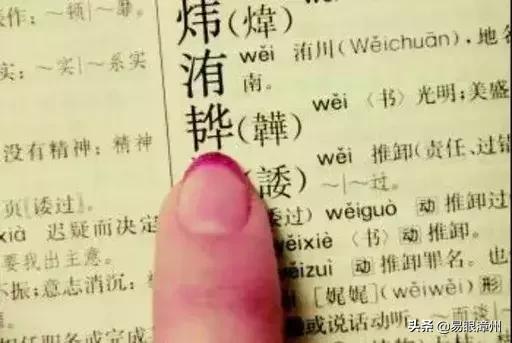 作：～顿|～靡。
实：～实|～系实
没有精神；精神
页〖诿过〗
xià 迟疑而决定
要我出主意。
不振；意志消沉：
职务或完成
炜(煒)
洧 wěi 洧川(Wěichuān)，地名
南。
(韡) wěi 〈书〉光明；美盛
(諉) wěi 推卸(责任、过错
～|～过。
委过) wěiguò 动 推卸过
wěixiè 〈书〉动 推卸。
wěizuì 动 推卸罪名。也
[娓娓](wěiwěi) 形
或说话动听：～而谈|
头条 @易眼漳州